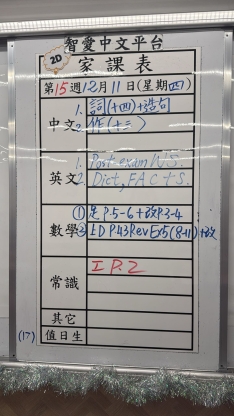 智愛中文平台
2D
家課表
第15週12月11日(星期四)
中文
1. 詞(十四)+造句
2. 作(十二)
英文
1. Post exam W.S.
2. Dict, FACTS.
數學
① 足 P.5-6 + 改P.3-4
② LD P.43 Rev Ex5(8-11)+改
常識
I P.2
其它
(17)
值日生